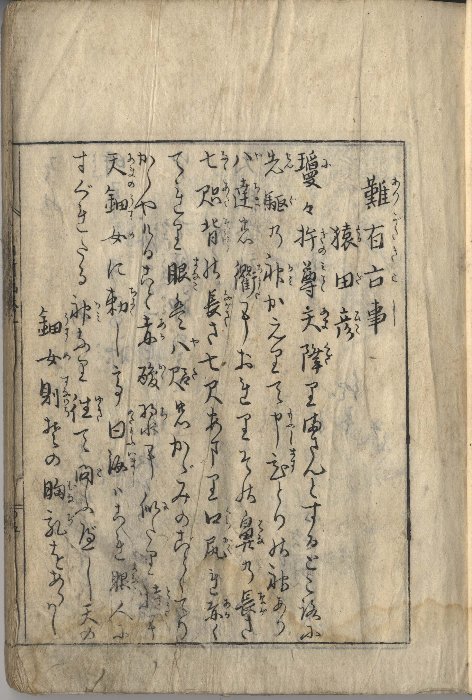 難有古事
猿田彦
瓊々杵尊天降りまさんとするところに
先駆の神かえりて申さくひとりの神あり
八達之衢におれりその鼻の長さ
七咫背の長さ七尺あまり口尻あかく
てれり眼は八咫のかゞみのごとくてり
かゝやけること赤酸漿に似たり時に
天鈿女に勅して曰汝はこれ眼人に
すぐれたる神なり往て問ふべし天の
鈿女則その胸乳をあらはし